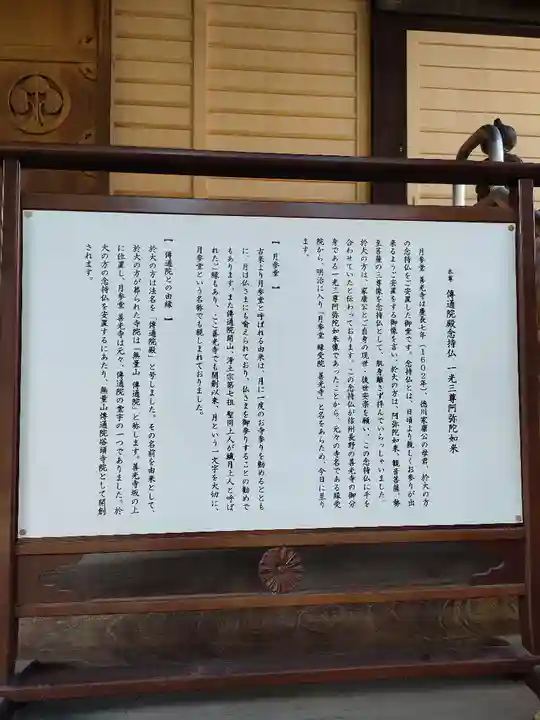 本尊 傳通院殿念持仏 一光三尊阿弥陀如来
月参堂 善光寺は慶長七年(1602年)、徳川家康公の母君、於大の方
の念持仏をご安置した御堂です。念持仏とは、日頃より親しくお参りが出
来るようご安置をする御像を言い、於大の方は、阿弥陀如来、観音菩薩、勢
至菩薩の三尊像を念持仏として、肌身離さず拝んでいらっしゃいました。
於大の方は、家康公とご自身の現世・後世安楽を願い、この念持仏に手を
合わせていたと伝わっております。この念持仏が信州長野の善光寺の御分
身である一光三尊阿弥陀如来像であったことから、元々の寺名である縁受
院から、明治に入り「月参堂 縁受院 善光寺」と名をあらため、今日に至り
ます。
【 月参堂 】
古来より月参堂と呼ばれる由来は、月に一度のお寺参りを勧めるととも
に、月は仏さまにも喩えられており、仏さまを御参りすることの勧めで
もあります。また傳通院開山、浄土宗第七祖 聖冏上人が繊月上人と呼ば
れたご縁もあり、ここ善光寺でも開創以来、月という一文字を大切に、
月参堂という名称でも親しまれております。
【 傳通院との由縁 】
於大の方は法名を「傳通院殿」と号しました。その名前を由来として、
於大の方が葬られた寺院は「無量山 傳通院」と称します。善光寺坂の上
に位置し、月参堂 善光寺は元々、傳通院の堂宇の一つでありました。於
大の方の念持仏を安置するにあたり、無量山傳通院塔頭寺院として開創
されます。